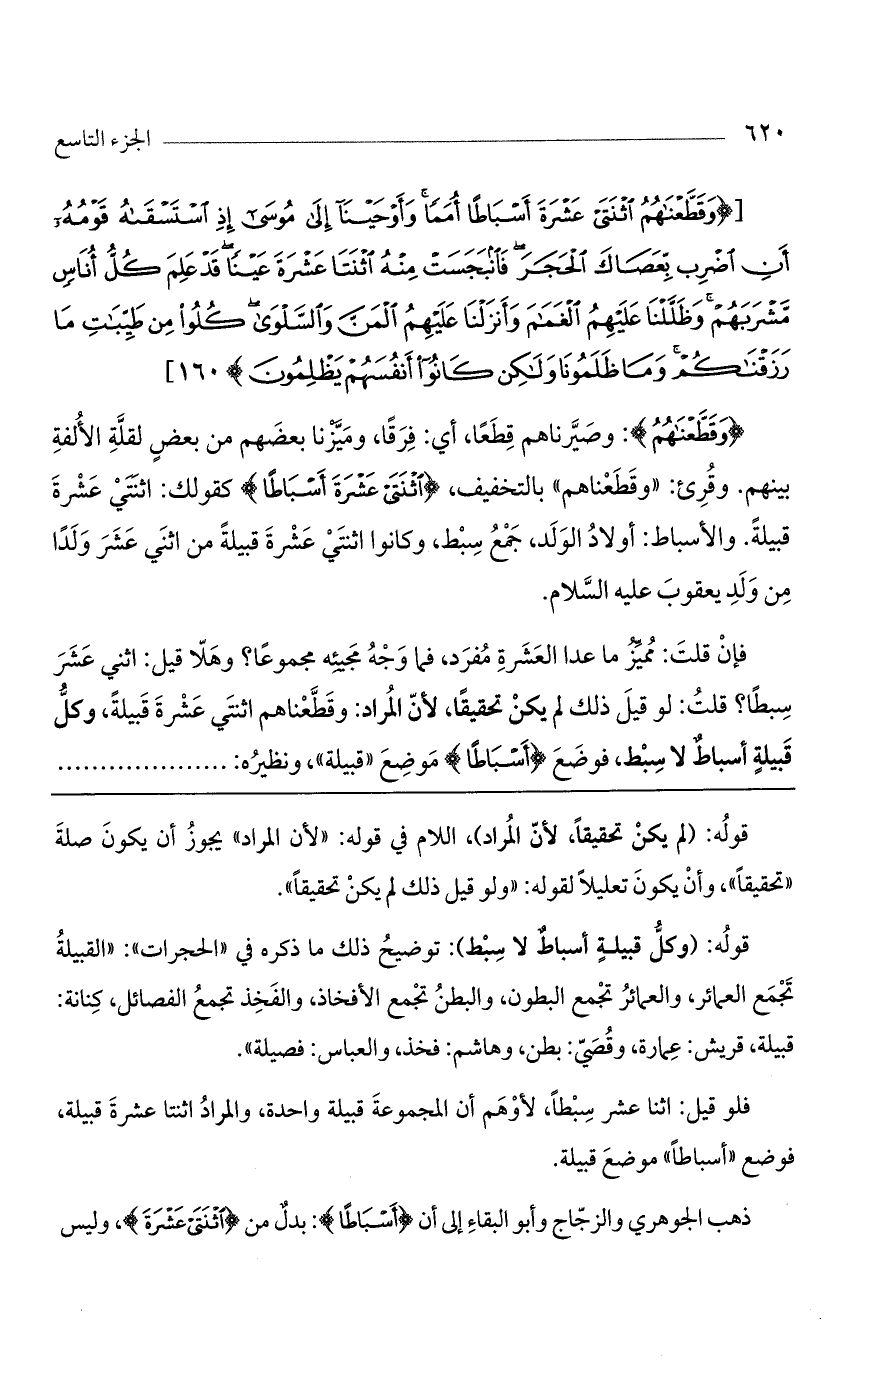 ٦٢٠ الجزء التاسع
[﴿وَقَطَّعْنَٰهُمُ ٱثْنَتَىْ عَشْرَةَ أَسْبَاطًا أُمَمًا ۚ وَأَوْحَيْنَآ إِلَىٰ مُوسَىٰٓ إِذِ ٱسْتَسْقَىٰهُ قَوْمُهُۥٓ
أَنِ ٱضْرِب بِّعَصَاكَ ٱلْحَجَرَ ۖ فَٱنۢبَجَسَتْ مِنْهُ ٱثْنَتَا عَشْرَةَ عَيْنًا ۖ قَدْ عَلِمَ كُلُّ أُنَاسٍ
مَّشْرَبَهُمْ ۚ وَظَلَّلْنَا عَلَيْهِمُ ٱلْغَمَٰمَ وَأَنزَلْنَا عَلَيْهِمُ ٱلْمَنَّ وَٱلسَّلْوَىٰ ۖ كُلُوا۟ مِن طَيِّبَٰتِ مَا
رَزَقْنَٰكُمْ ۚ وَمَا ظَلَمُونَا وَلَٰكِن كَانُوٓا۟ أَنفُسَهُمْ يَظْلِمُونَ﴾ ١٦٠]
﴿وَقَطَّعْنَٰهُمُ﴾: وصَيَّرناهم قِطَعًا، أي: فِرَقًا، ومَيَّزْنا بعضَهم من بعضٍ لقلَّةِ الأُلفةِ
بينهم. وقُرِئ: «وقَطَعْناهم» بالتخفيف، ﴿ٱثْنَتَىْ عَشْرَةَ أَسْبَاطًا﴾ كقولك: اثنَتَيْ عَشْرةَ
قبيلةً. والأسباط: أولادُ الوَلَد، جَمْعُ سِبْط، وكانوا اثنتَيْ عَشْرةَ قبيلةً من اثنَي عَشَرَ وَلَدًا
مِن وَلَدِ يعقوبَ عليه السَّلام.
فإنْ قلتَ: مُميِّزُ ما عدا العَشَرةِ مُفرَد، فما وَجْهُ مَجيئِه مجموعًا؟ وهَلّا قيل: اثني عَشَرَ
سِبطًا؟ قلتُ: لو قيلَ ذلك لم يكنْ تحقيقًا، لأنّ المُراد: وقَطَّعْناهم اثنتَي عَشْرةَ قَبيلةً، وكلُّ
قَبيلةٍ أسباطٌ لا سِبْط، فوضَعَ ﴿أَسْبَاطًا﴾ مَوضِعَ «قبيلة»، ونظيرُه: ....................
قولُه: (لم يكنْ تحقيقاً، لأنّ المُراد)، اللام في قوله: «لأن المراد» يجوزُ أن يكونَ صلةَ
«تحقيقاً»، وأنْ يكونَ تعليلاً لقوله: «ولو قيل ذلك لم يكنْ تحقيقاً».
قولُه: (وكلُّ قبيلةٍ أسباطٌ لا سِبْط): توضيحُ ذلك ما ذكره في «الحجرات»: «القبيلةُ
تَجْمَع العمائر، والعمائرُ تجْمع البطون، والبطنُ تجْمع الأفخاذ، والفَخِذ تجمعُ الفصائل، كِنانة:
قبيلة، قريش: عِمارة، وقُصَيّ: بطن، وهاشم: فخذ، والعباس: فصيلة».
فلو قيل: اثنا عشر سِبْطاً، لأوْهَم أن المجموعةَ قبيلة واحدة، والمرادُ اثنتا عشرةَ قبيلة،
فوضع «أسباطاً» موضعَ قبيلة.
ذهب الجوهري والزجّاج وأبو البقاءِ إلى أن ﴿أَسْبَاطًا﴾: بدلٌ من ﴿ٱثْنَتَىْ عَشْرَةَ﴾، وليس